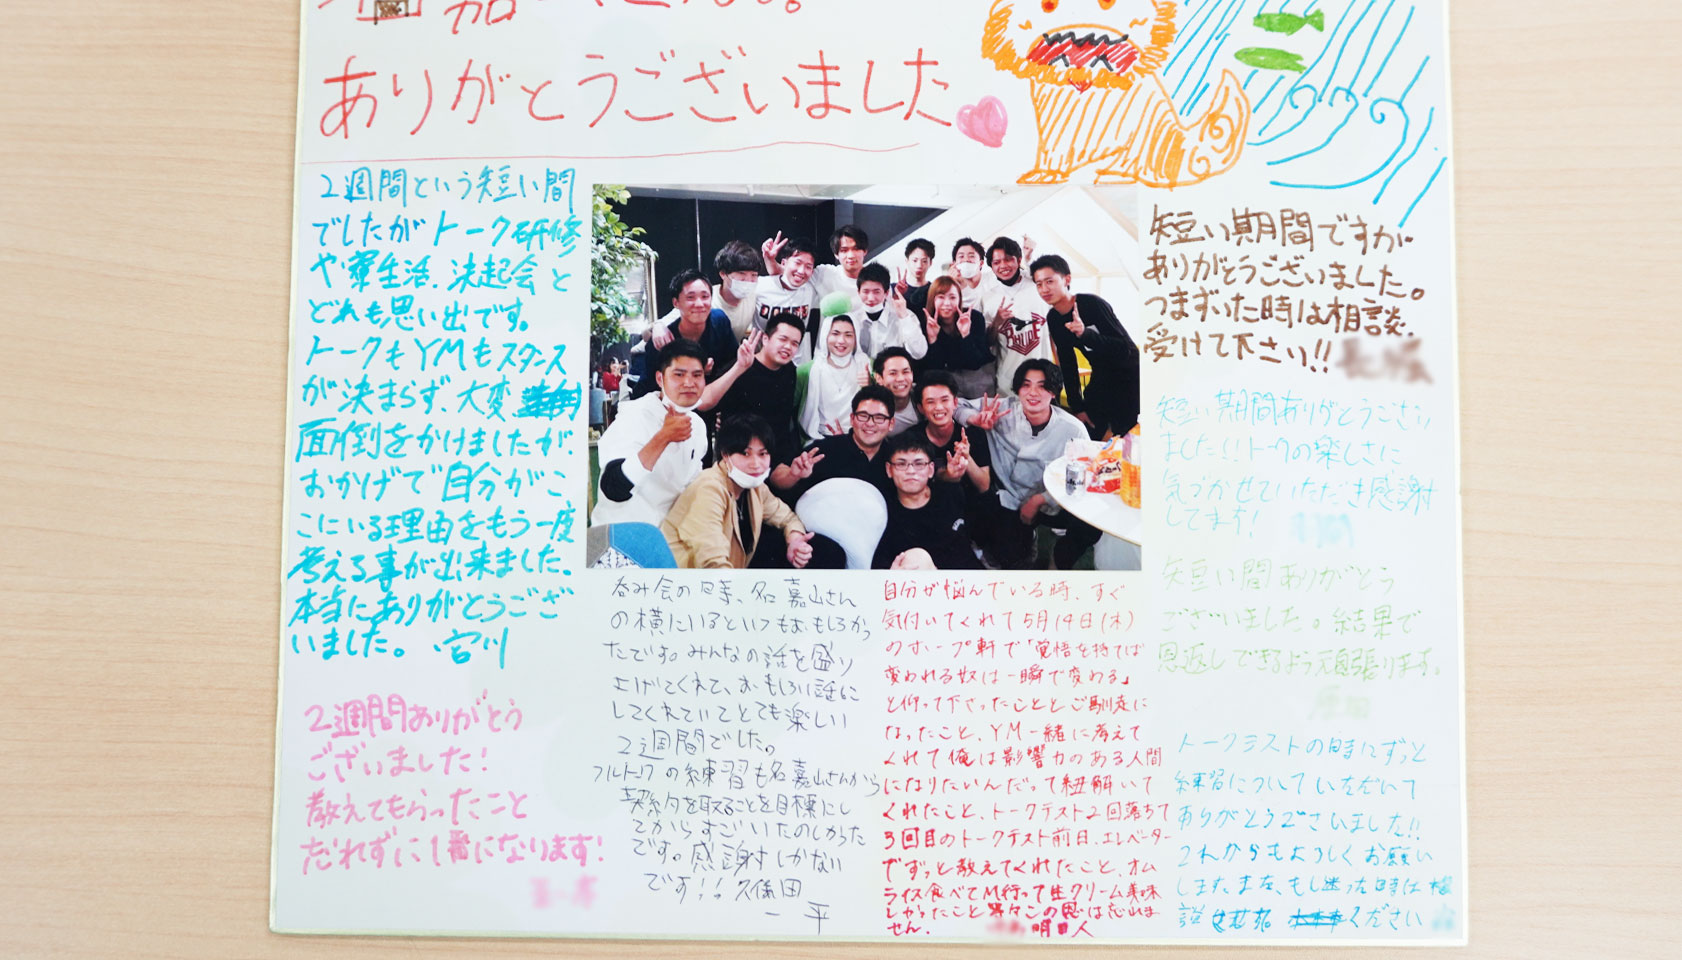 ありがとうございました
2週間という短い間
でしたがトーク研修
や寮生活、決起会と
どれも思い出です。
トークもYMもスタンス
が決まらず、大変
面倒をかけましたが、
おかげで自分がこ
こにいる理由をもう一度
考える事が出来ました。
本当にありがとうござ
いました。 宮川
2週間ありがとう
ございました!
教えてもらったこと
忘れずに1番になります!
呑み会の時、名嘉山さん
の横にいるといつもおもしろかっ
たです。みんなの話を盛り
上げてくれて、おもしろい話に
してくれていてとても楽しい
2週間でした。
フルトークの練習も名嘉山さんから
契約を取ることを目標にし
てからすごいたのしかった
です。感謝しかない
です!! 久保田
一平
自分が悩んでいる時、すぐ
気付いてくれて5月14日(木)
のホープ軒で「覚悟を持てば
変われる奴は一瞬で変わる」
と仰って下さったこととご馳走に
なったこと、YM一緒に考えて
くれて俺は影響力のある人間
になりたいんだって紐解いて
くれたこと、トークテスト2回落ちて
3回目のトークテスト前日、エレベーター
でずっと教えてくれたこと、オム
ライス食べてM行って生クリーム美味
しかったこと の恩は忘れま
せん。 明日人
短い期間ですが
ありがとうございました。
つまずいた時は相談、
受けて下さい!!
短い期間ありがとうござい
ました!!トークの楽しさに
気づかせていただき感謝
してます!
短い間ありがとう
ございました。結果で
恩返しできるよう頑張ります。
トークテストの時にずっと
練習についていただいて
ありがとうございました!!
これからもよろしくお願い
します。また、もし迷った時は相
談 ください